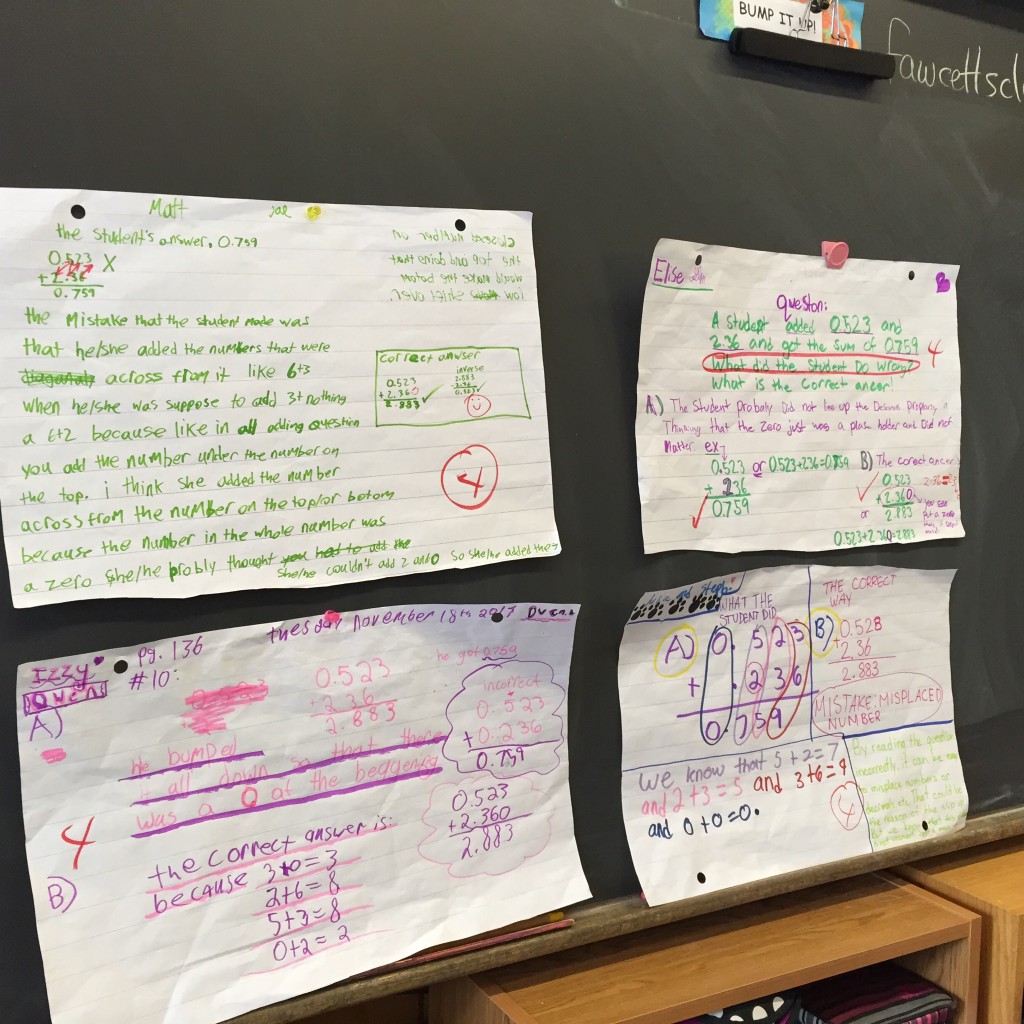 BUMP IT UP!
fawcettscl
Matt
Jae
the student's answer, 0.759
0.523 X
+ 2.36
0.759
the Mistake that the student made was
that he/she added the numbers that were
across from it like 6+3
when he/she was suppose to add 3+nothing
a 6+2 because like in all adding question
you add the number under the number on
the top. i think she added the number
across from the number on the top/or botom
because the number in the whole number was
a zero she/he probly thought you had to add the
she/he couldn't add 2 and 0 so she/he added the
correct anwser
0.523
+ 2.360
2.883
inverse
2.883
4
Else
Question:
A student added 0.523 and
2.36 and got the sum of 0.759
What did the Student Do wrong?
What is the correct ancer!
4
A.) The student probaly Did not line up the
Thinking that the Zero just was a holder and Did not
Matter. ex
0.523 or 0.523+236=0.759
+ 236
0.759
B) The corect ancer
0.523
+ 2.360
or 2.883
0.523+2.360=2.883
Tuesday November 18th 2017
Izzy
Owens
pg. 136
#10:
A)
0.523
+ 2.36
2.883
he got 0.759
incorrect
0.523
+ 0.236
0.759
0.523
+2.360
2.883
He bumped
it all down so that there
was a 0 at the beggening
4
B)
the correct answer is:
because 3+0=3
2+6=8
5+3=8
0+2=2
WHAT THE
STUDENT DID
A) 0.523
+ .236
0.759
THE CORRECT
WAY
B) 0.528
+ 2.36
2.883
MISTAKE: MISPLACED
NUMBER
we know that 5+2=7
and 2+3=5 and 3+6=9
and 0+0=0.
4
By reading the question
incorrectly, it can be easy
to misplace numbers or
decimals etc. That could be
the reason of the slip